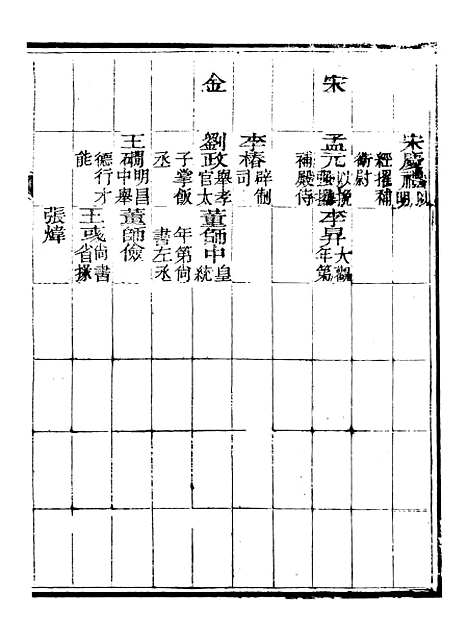 宋慶禮以明
經擢補
衛尉
宋
孟元以
補殿侍
李昇大觀
年第
李椿辟制
司
金
劉政舉孝
官太
子掌飯
丞
董師中皇
統
年第尚
書左丞
王磵明昌
中舉
德行才
能
董師儉
王彧尚書
省掾
張煒